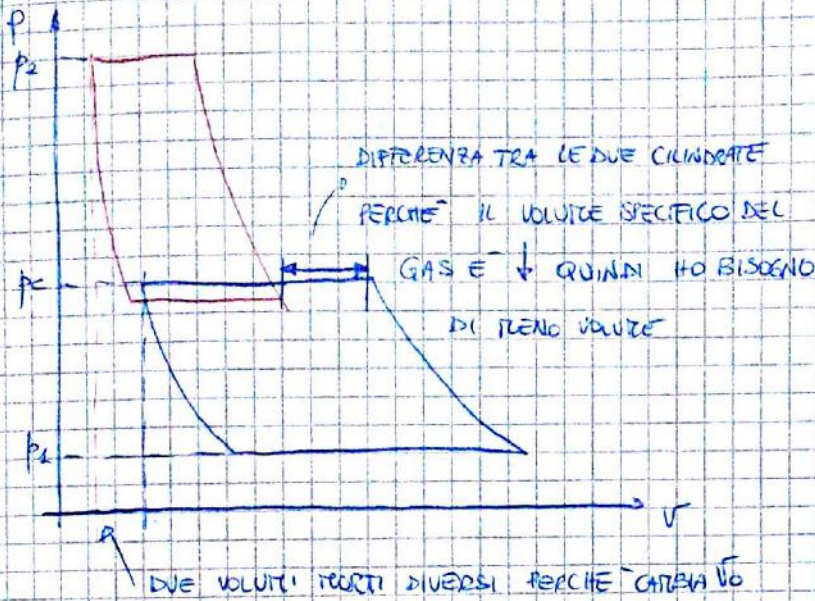 P
p2
DIFFERENZA TRA LE DUE CILINDRATE
PERCHE' IL VOLUME SPECIFICO DEL
GAS E' ↓ QUINDI HO BISOGNO
DI MENO VOLUME
pc
p1
V
DUE VOLUMI MORTI DIVERSI PERCHE' CAMBIA V0